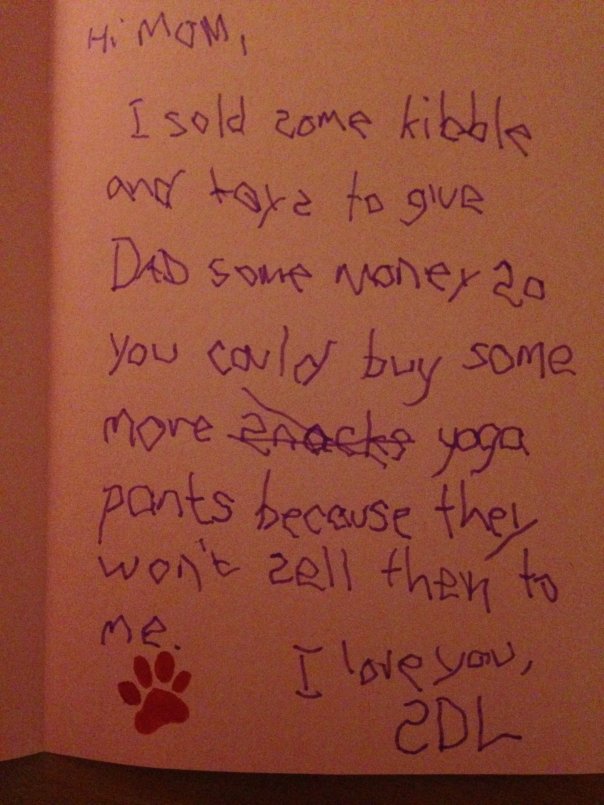 Hi MOM,
I sold some kibble
and toys to give
DAD some money so
you could buy some
more snacks yoga
pants because they
won't sell them to
me.
I love you,
SDL